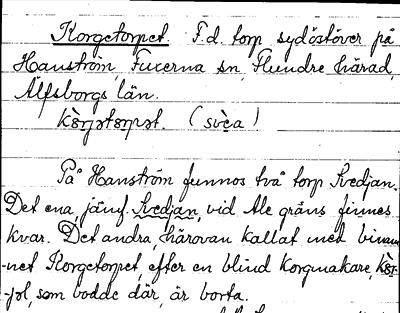 Korgetorpet. F.d. torp sydöstöver på
Hanström, Fuxerna sn, Flundre härad,
Älfsborgs län.
(svea)
På Hanström funnos två torp Svedjan.
Det ena, jämf. Svedjan, vid Ale gräns finnes
kvar. Det andra, härovan kallat med binam-
-net Korgetorpet, efter en blind korgmakare,
som bodde där, är borta.